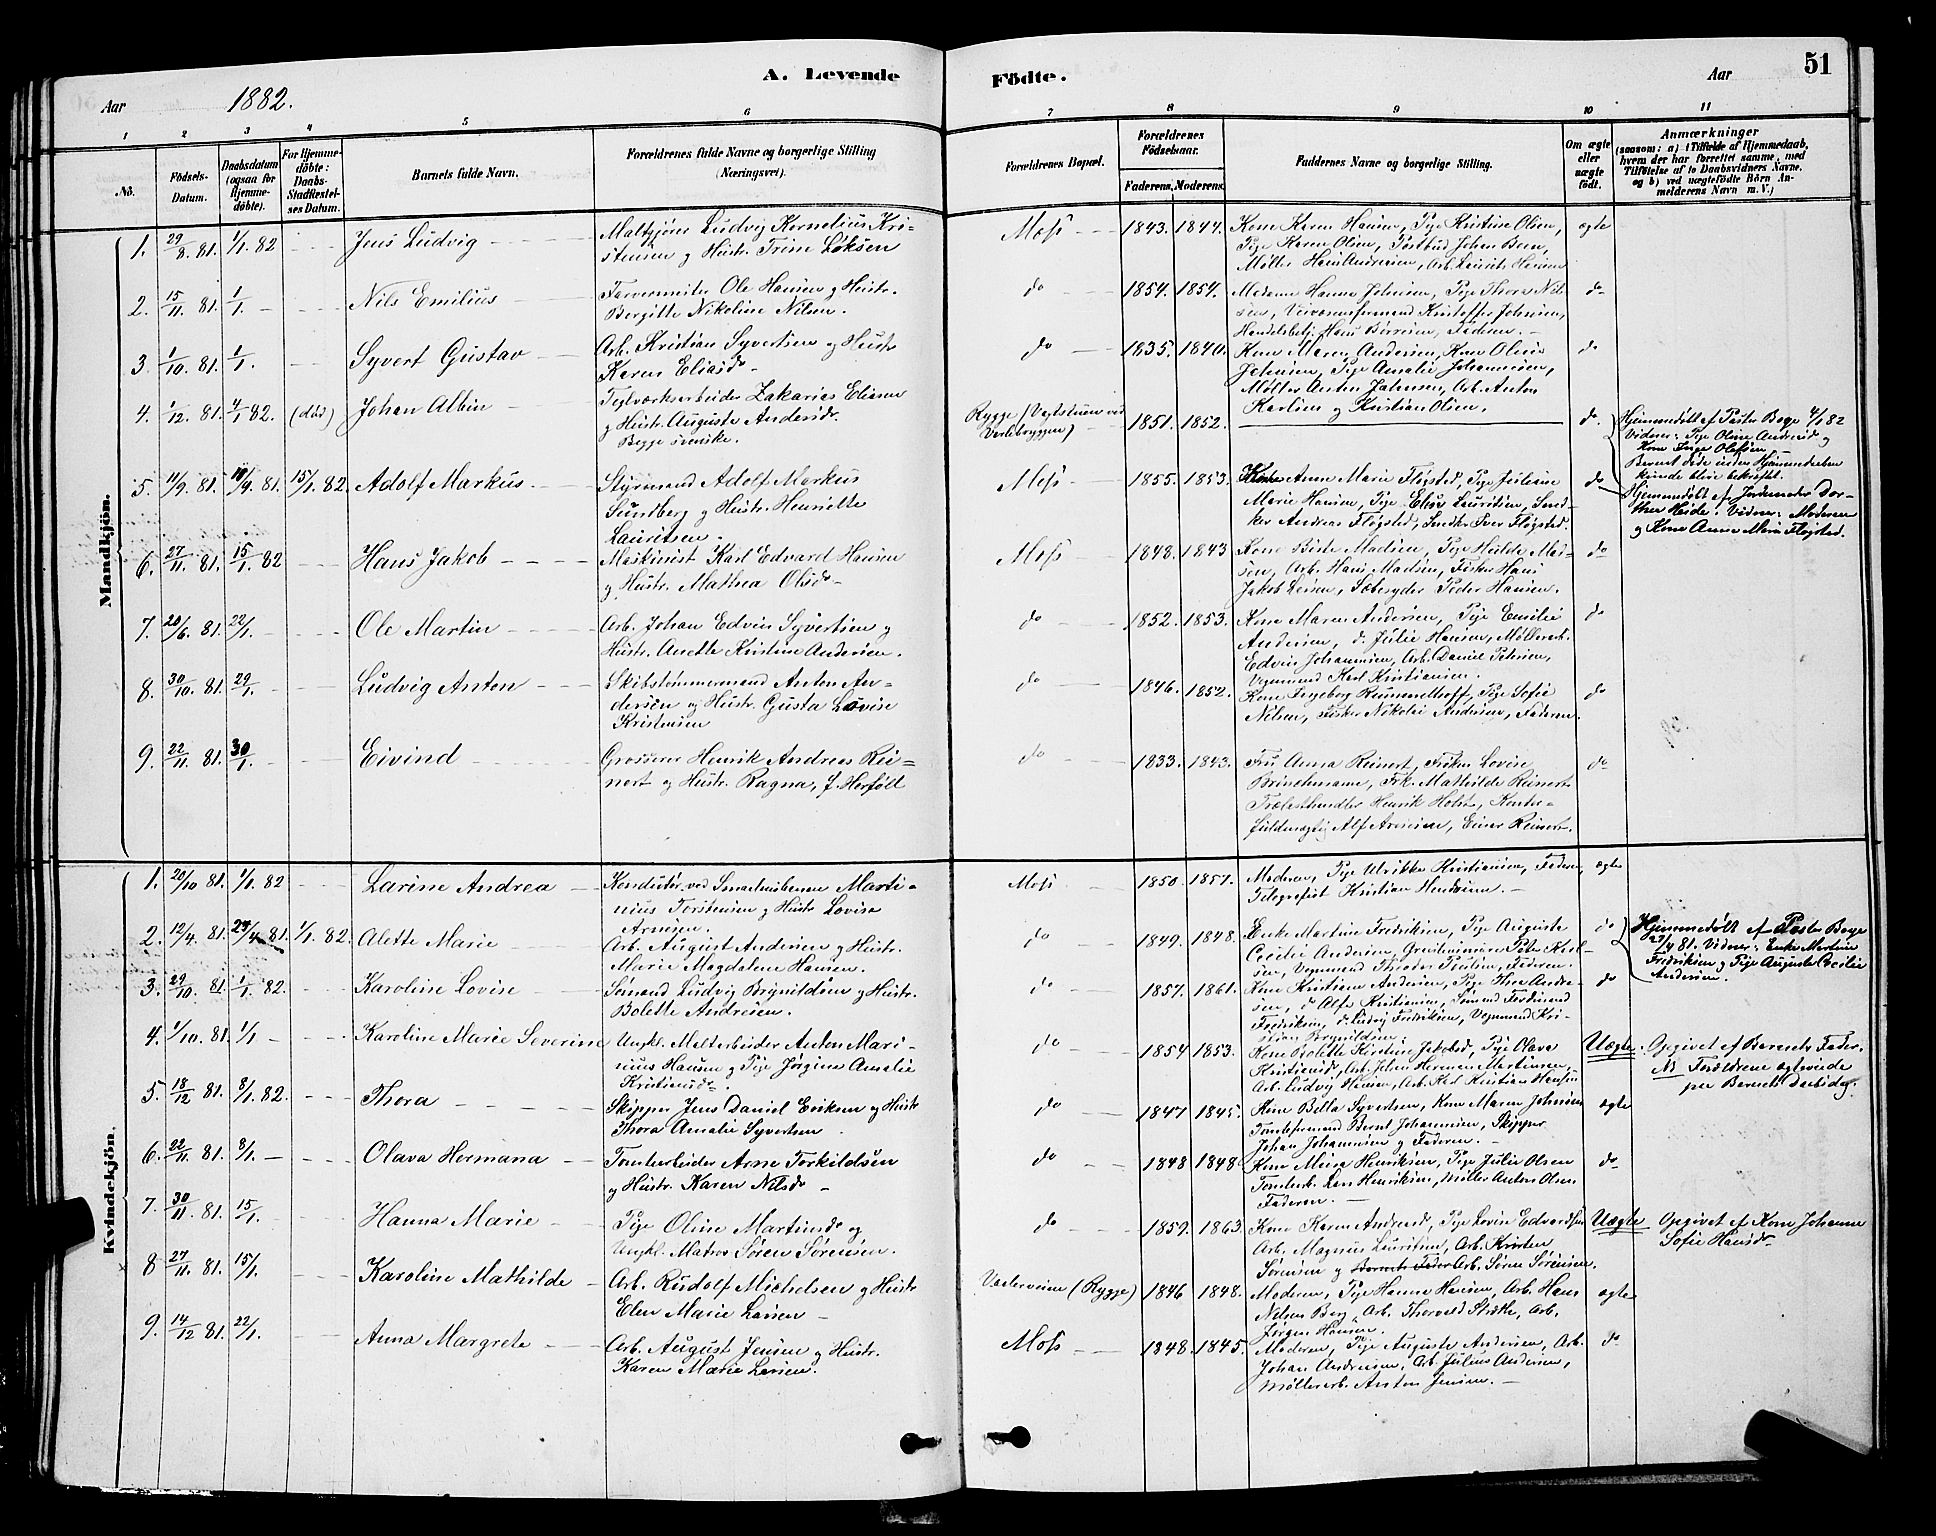 51
A. Levende Födte.
Aar 1882.
Aar
1 2 3 4 5 6 7 8 9 10 11
No. Födsels-Datum. Daabsdatum (ogsaa for Hjemmedöbte). For Hjemmedöbte: Daabs-Stadfæstelses Datum. Barnets fulde Navn. Forældrenes fulde Navne og borgerlige Stilling (Næringsvei). Forældrenes Bopæl. Forældrenes Födselsaar. Faderens. Moderens. Faddernes Navne og borgerlige Stilling. Om ægte eller uægte födt. Anmærkninger (saasom: a) i Tilfælde af Hjemmedaab, hvem der har forrettet samme, med Tilföielse af to Daabsvidners Navne, og b) ved uægtefödte Börn Anmelderens Navn m. V.)
Mandkjön.
1. 29/8. 81. 1/1. 82 Jens Ludvig
Ludvig Kornelius Kri-
stensen og Hustr. Trine Løksen
Moss 1843. 1844. Kone Karen Hansen, Pige Kristine Olsen,
Pige Karen Olsen, Postbud Johan Been,
Møller Hans Andresen, Arb. Laurits Hansen
ægte
2. 15/11. 81. 1/1. Nils Emilius
Farvermester Ole Hansen og Hustr.
Bergitte Nikoline Nilsen.
do 1854. 1854. Madame Hanna Johnsen, Pige Thora Nil-
sen, Kristoffer Johnsen,
Handelsbetj. Hans Børresen, Faderen.
do
3. 1/10. 81. 1/1. Syvert Gustav
Arb. Kristian Syvertsen og Hustr
Karen Eliasd.
do 1835. 1840. Kone Maren Andersen, Kone Oline
Johnsen, Pige Amalie Johannesen,
Møller Anton Jahnsen, Arb. Anton
Karlsen og Kristian Olsen.
do
4. 1/12. 81. 4/1 82. (død) Johan Albin
Teglværksarbeider Zakarias Eliasen
og Hustr. Auguste Andersd.
Begge svenske.
Rygge (Vagtstuen ved
Værlebryggen) 1851. 1852.
do.
Hjemmedøbt af Pastor Berge 4/1 82
Vidner: Pige Oline Andersd og
Kone Inge Olafsen
Barnet døde inden Hjemmedaaben
kunde blive bekræftet.
5. 11/9. 81. 18/9. 81. 15/1. 82. Adolf Markus.
Styrmand Adolf Markus
Sundberg og Hustr. Henriette
Lauritsen.
Moss 1855. 1853. Anne Marie Flogsted, Pige Juliane
Marie Hansen, Pige Elise Lauritsen, Sned-
ker Andreas Flogsted, Snedker Iver Flogsted.
do
Hjemmedøbt af Jordemoder Dor-
thea Heide. Vidner: Moderen
og Kone Anne Marie Flogsted.
6. 27/11. 81. 15/1. 82 Hans Jakob
Maskinist Karl Edvard Hansen
og Hustr. Mathea Olsd.
Moss 1848. 1843 Kone Beate Madsen, Pige Hulda Mad-
sen, Arb. Hans Madsen, Fisker Hans
Jakob Larsen, Sæbesyder Peder Hansen.
do
7. 20/6. 81. 22/1. Ole Martin
Arb. Johan Edvin Syvertsen og
Hustr. Anette Kristine Andersen.
do 1852. 1853. Kone Maren Andersen, Pige Emilie
Andersen, d. Julie Hansen, Møllerarb.
Edvin Johannesen, Arb. Daniel Petersen,
Vognmand Karl Kristiansen.
do
8. 30/10. 81. 29/1. Ludvig Anton
Skibstømmermand Anton An-
dersen og Hustr. Gusta Lovise
Kristensen
do 1846. 1852. Kone Ingeborg Rummelhoff, Pige Sofie
Nilsen, Fisker Nikolai Andersen, Faderen.
do
9. 22/11. 81. 30/1. Eivind
Grosserer Henrik Andreas Rei-
nert og Hustr. Ragna, f. Herføll
do 1833. 1843. Fru Anna Reinert, Frøken Lovise
Brinchmann, Frk. Mathilde Reinert
Trælasthandler Henrik Holst, Kontor-
fuldmægtig Alf Arnesen, Einar Reinert.
do
Kvindekjön.
1. 20/10 81. 1/1. 82 Larine Andrea
Konduktør ved Smaalensbanen Marti-
nius Torstensen og Hustr Lovise
Arnesen.
Moss 1850. 1857. Moderen, Pige Ulrikke Kristiansen, Faderen,
Telegrafist Kristian Hendrisen.
ægte
2. 12/4. 81. 29/4. 81. 1/1. 82. Alette Marie
Arb. August Andersen og Hustr.
Marie Magdalene Hansen.
do 1849. 1848. Enke Martine Fredriksen, Pige Auguste
Cecilie Andersen, Peter Karl-
sen, Vognmand Theodor Paulsen, Faderen.
do
Hjemmedøbt af Pastor Berge
29/4 81. Vidner: Enke Martine
Fredriksen og Pige Auguste Cecilie
Andersen.
3. 29/10. 81. 1/1. 82. Karoline Lovise
Sømand Ludvig Brynildsen og Hustr.
Bolette Andresen.
do 1857. 1861. Kone Kristiane Andersen, Pige Andre-
sen, d Alfr. Kristiansen, Sømand Ferdinand
Fredriksen, d. Ludvig Fredriksen, Vognmand Kri-
stian Brynildsen.
do
4. 1/10. 81. 1/1. Karoline Marie Severine
Ungkl. Maltarbeider Anton Mari-
nius Hansen og Pige Jørgine Amalie
Kristiansd.
do 1854 1853. Kone Bolette Kirstine Jakobsd, Pige Olava
Kristiansd, Arb. Johan Herman Martinsen,
Arb. Ludvig Hansen, Arb. Karl Kristian Hansen
Uægte. Opgivet af Barnets Fader.
NB Forældrene ægteviede
paa Barnets Daabsdag.
5. 18/12 81. 8/1. 82. Thora
Skipper Jens Daniel Eriksen og Hustr
Thora Amalie Syvertsen
do 1847 1845. Kone Bella Syvertsen, Kone Maren Johnsen
Tomteformand Bernt Johannesen, Skipper
Johan Johannesen og Faderen.
ægte
6. 22/11. 81. 8/1. Olava Hermana
Tomtearbeider Arne Torkildsen
og Hustr. Karen Nilsd.
do 1848 1848 Kone Mina Henriksen, Pige Julie Olsen
Tomtearb. Lars Henriksen, Møller Anton Olsen
Faderen.
do
7. 30/11. 81. 15/1. Hanna Marie
Pige Oline Martinsd og
Ungkl. Matros Søren Sørensen.
do 1859. 1863. Kone Karen Andreasd, Pige Lovise Edvardsen
Arb. Magnus Lauritsen, Arb. Kristen
Sørensen og Barnets Fader Arb. Søren Sørensen.
Uægte Opgivet af Kone Johanne
Sofie Hansd.
8 27/11. 81. 15/1. Karoline Mathilde
Arb. Rudolf Michelsen og Hustr
Elen Marie Larsen
Vaalerveien (Rygge) 1846 1848. Moderen, Pige Hanna Hansen, Arb. Hans
Nilsen Berg, Arb. Thorvald, Arb.
Jørgen Hansen.
ægte
9. 14/12 81. 22/1. Anna Margrete
Arb. August Jensen og Hustr.
Karen Marie Larsen.
Moss 1848. 1845. Moderen, Pige Auguste Andersen, Arb.
Johan Andresen, Arb. Julius Andersen,
Møllerarb. Anton Jensen.
do